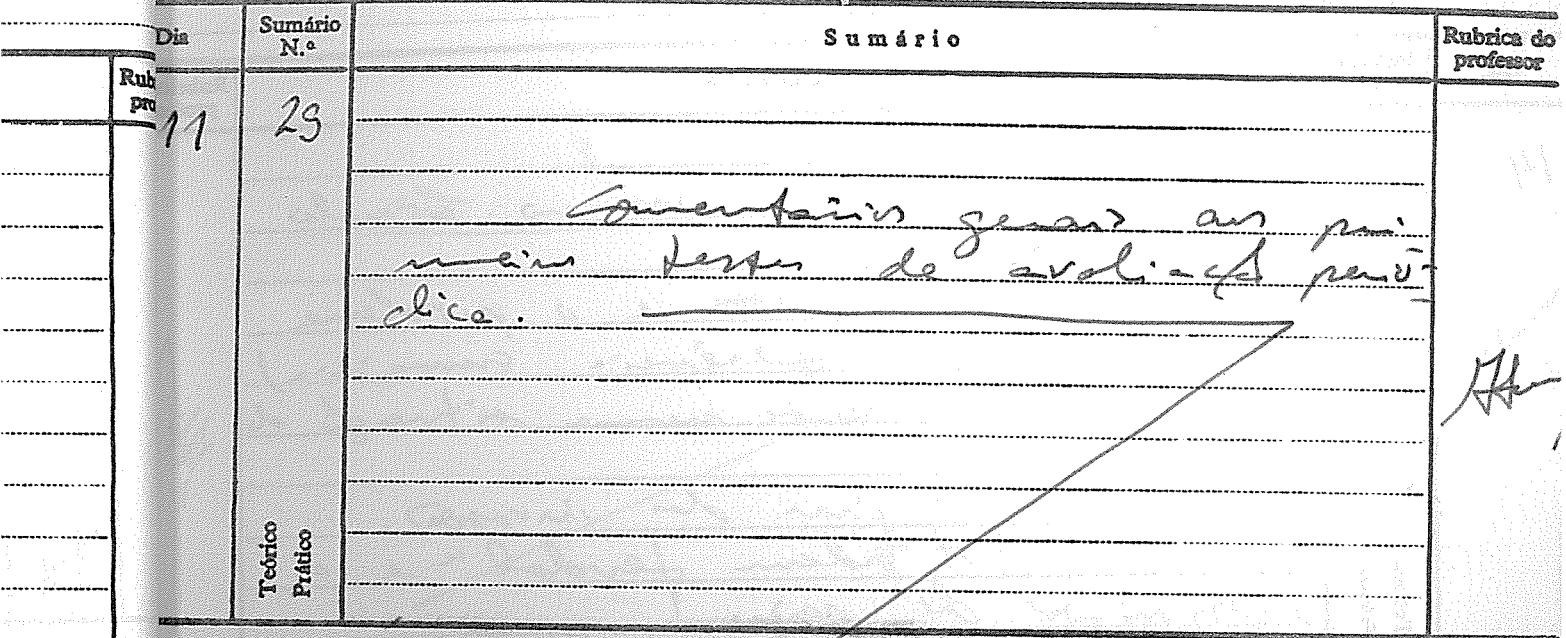 Dia
Sumário N.º
Sumário
Rubrica do professor
Rub
pro
11
29
Comentários gerais aos pri-
meiros testes de avaliação perió-
dica.
Teórico
Prático